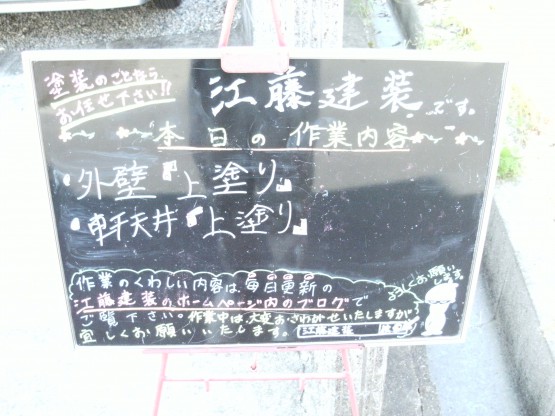 塗装のことなら
お任せ下さい!!
江藤建装です。
本日の作業内容
・外壁『上塗り』
・軒天井『上塗り』
作業のくわしい内容は、毎日更新の
江藤建装のホームページ内のブログで
ご覧下さい。作業中は、大変おさわがせいたしますが
宜しくお願いいたします。江藤建装
よろしくお願いします。